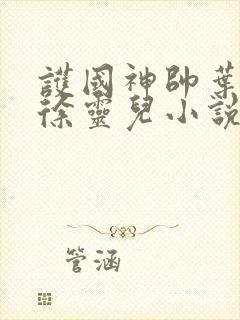 護國神帥葉
徐靈兒小說
管涵